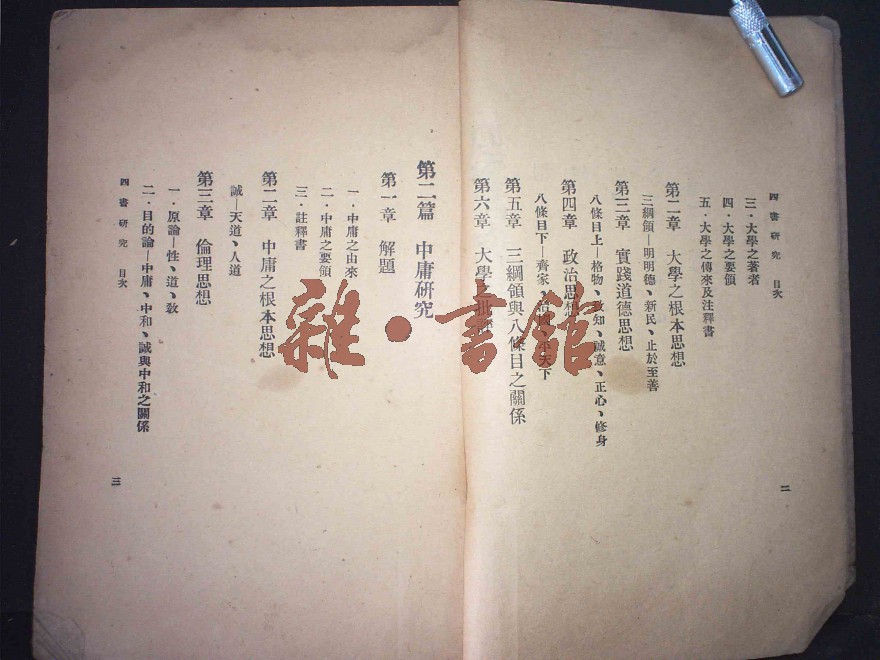 四書研究 目次
三．大學之著者
四．大學之要領
五．大學之傳來及注釋書
第二章 大學之根本思想
三綱領—明明德、新民、止於至善
第三章 實踐道德思想
八條目上—格物、致知、誠意、正心、修身
第四章 政治思想
八條目下—齊家、治國、平天下
第五章 三綱領與八條目之關係
第六章 大學之批評
二
第二篇 中庸研究
第一章 解題
一．中庸之由來
二．中庸之要領
三．註釋書
第二章 中庸之根本思想
誠—天道、人道
第三章 倫理思想
一．原論—性、道、教
二．目的論—中庸、中和、誠與中和之關係
四書研究 目次
三
雜·書館